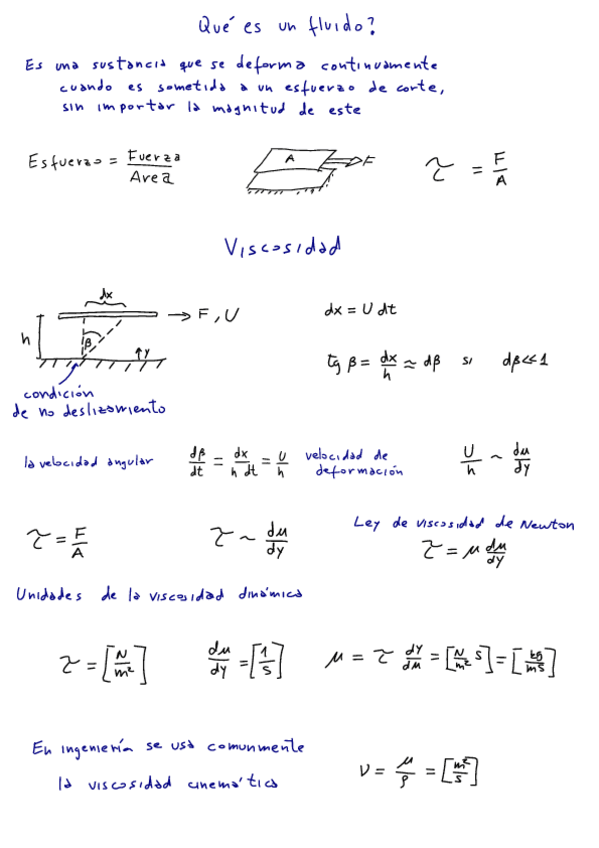 Qué es un fluido?
Es una sustancia que se deforma continuamente
cuando es sometida a un esfuerzo de corte,
sin importar la magnitud de este
Esfuerzo = Fuerza / Area
A
F
τ = F/A
Viscosidad
dx
F, U
h
β
y
condición
de no deslizamiento
dx = U dt
tg β = dx/h ≈ dβ si dβ ≪ 1
la velocidad angular dβ/dt = dx/(h dt) = U/h
velocidad de
deformación
U/h ~ du/dy
τ = F/A
τ ~ du/dy
Ley de viscosidad de Newton
τ = μ du/dy
Unidades de la viscosidad dinámica
τ = [N/m²]
du/dy = [1/s]
μ = τ dy/du = [N/m² s] = [kg/ms]
En ingeniería se usa comunmente
la viscosidad cinemática
ν = μ/ρ = [m²/s]